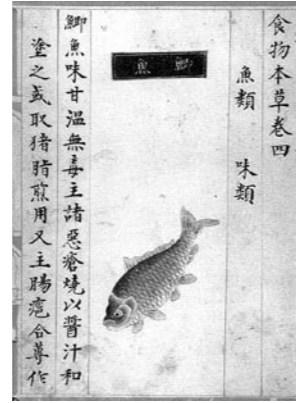 食物本草卷四
魚類 味類
鯽魚
鯽魚味甘溫無毒主諸惡瘡燒以醬汁和
塗之或取猪脂煎用又主腸合蓴作